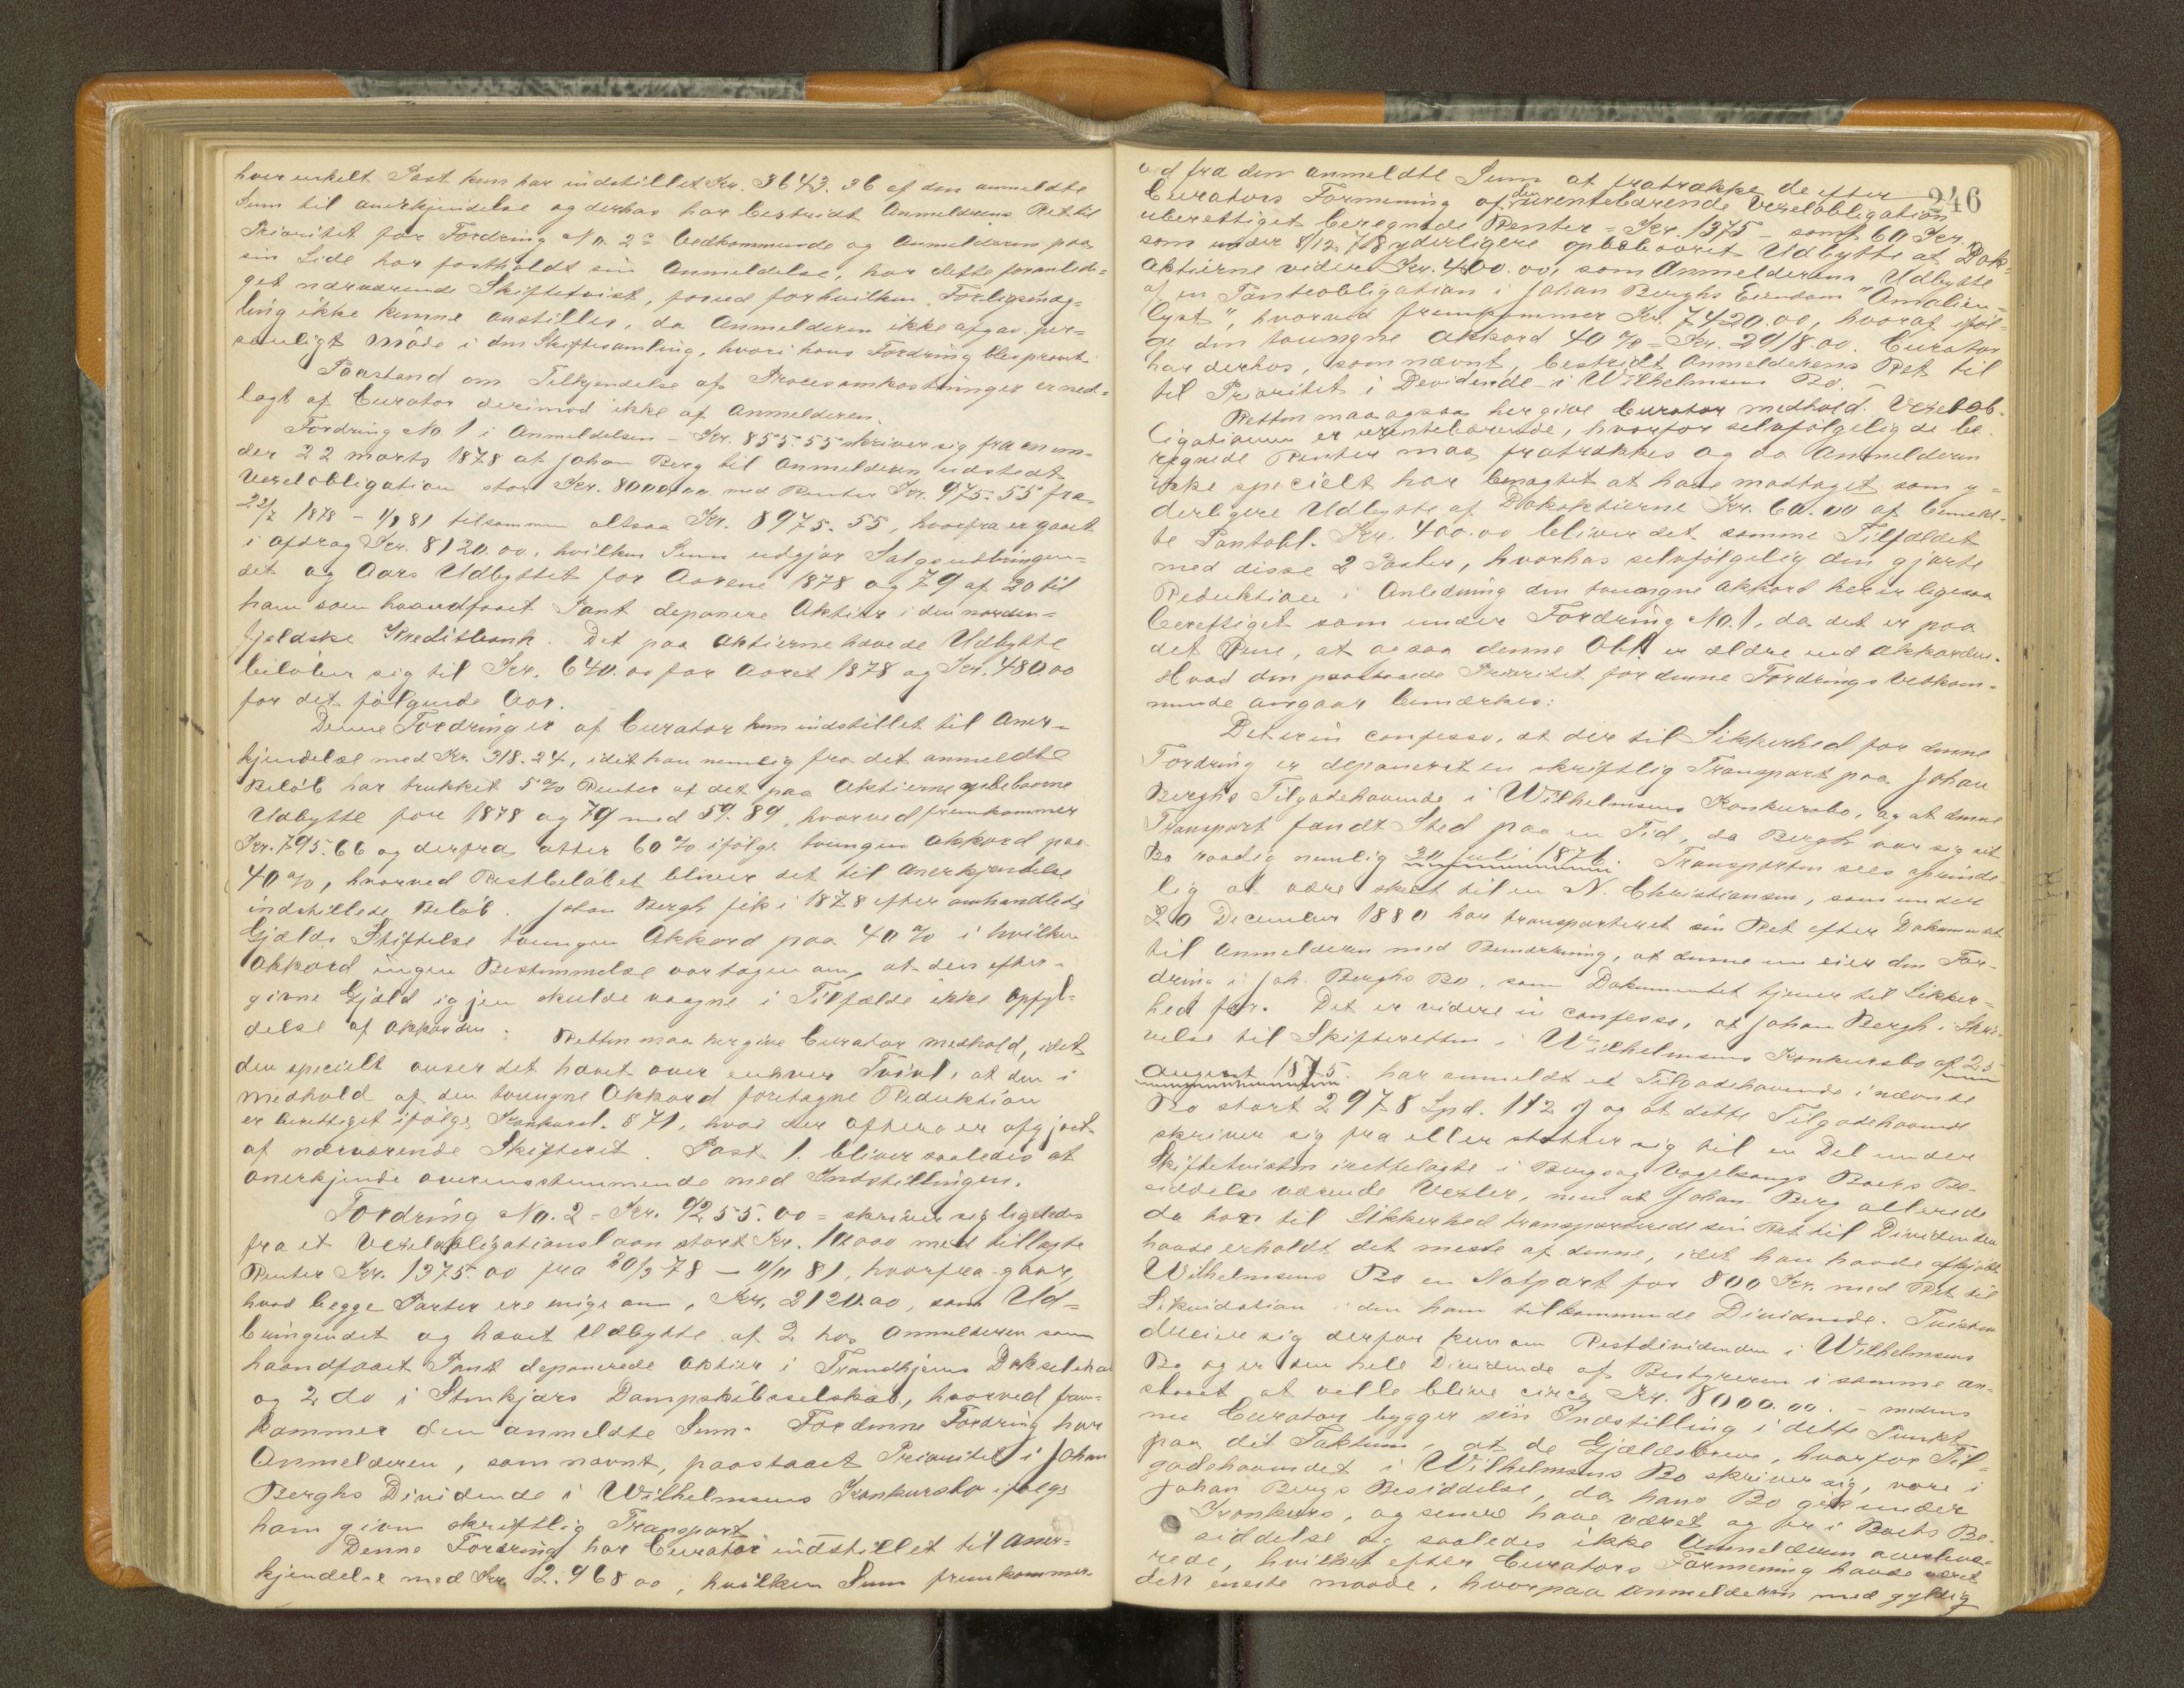 hver enkelt Post kun har indstillet Kr. 3643.36 af den anmeldte
Sum til anerkjendelse og derhos har bestridt Anmelderens Ret til
Prioritet for Fordring No. 2s Vedkommende og Anmelderen paa
sin Side har fastholdt sin Anmeldelse, har dette foranledi=
get nærværende Skiftetvist, forud for hvilken Forligsmæg=
ling ikke kunne anstilles, da Anmelderen ikke afgav per=
sonligt Møde i den Skiftesamling, hvori hans Fordring blev prøvet.
Paastand om Tilkjendelse af Procesomkostninger er ned=
lagt af Curator derimod ikke af Anmelderen.
Fordring No. 1 i Anmeldelsen - Kr. 855.55 skriver sig fra en un=
der 22 marts 1878 af Johan Berg til Anmelderen udstedt
Vexelobligation stor Kr. 8000,00 med Renter Kr. 975.55 fra
22/3 1878 - 1/9 81 tilsammen altsaa Kr. 8975.55, hvorfra er gaaet
i afdrag Kr. 8120.00, hvilken Sum udgjør Salgsudbringen=
det og Aars Udbyttet for Aarene 1878 og 79 af 20 til
ham som haandfaaet Pant deponere Aktier i den norden=
fjeldske Kreditbank. Det paa Aktierne hævede Udbytte
beløber sig til Kr. 640.00 for Aaret 1878 og Kr. 480.00
for det følgende Aar.
Denne Fordring er af Curator kun indstillet til Aner=
kjendelse med Kr. 318.24, idet han nemlig fra det anmeldte
Beløb har trukket 5% Renter af det paa Aktierne opebaarne
Udbytte for 1878 og 79 med 59.89, hvorved fremkommer
Kr. 795.66 og derfra atter 60% ifølge tvungen Akkord paa
40%, hvorved Restbeløbet bliver det til Anerkjendelse
indstillede Beløb. Johan Bergh fik i 1878 efter omhandlede
Gjælds Stiftelse tvungen Akkord paa 40% i hvilken
Akkord ingen Bestemmelse var tagen om, at den efter=
givne Gjæld igjen skulde vaagne i Tilfælde ikke Opfyl=
delse af Akkorden. Retten maa her give Curator medhold, idet
den specielt anser det hævet over enhver Tvivl, at den i
medhold af den tvungne Akkord foretagne Reduktion
er berettiget ifølge Konkursl. § 71, hvad der oftere er afgjort
af nærværende Skifteret. Post 1. bliver saaledes at
anerkjende overensstemmende med Indstillingen.
Fordring No. 2 = Kr. 9255.00 = skriver sig ligeledes
fra et Vexelobligationslaan stort Kr. 10000 med tillagte
Renter Kr. 1375.00 fra 20/3 78 - 11/11 81, hvorfra gaar,
hvad begge Parter ere enige om, Kr. 2120.00, som Ud=
bringendet og hævet Udbytte af 2 hos Anmelderen som
haandfaaet Pant deponerede Aktier i Trondhjems Dokselskab
og 2 do i Stenkjærs Dampskibsselskab, hvorved frem=
kommer den anmeldte Sum. For denne Fordring har
Anmelderen, som nævnt, paastaaet Prioritet i Johan
Berghs Dividende i Wilhelmsens Konkursbo ifølge
ham given skriftlig Transport.
Denne Fordring har Curator indstillet til Aner=
kjendelse med Kr. 2.968 00, hvilken Sum fremkommer
246
ved fra den anmeldte Sum at fratrække de efter
Curators Formening af den urentebærende Vexelobligation
uberettiget beregnede Renter = Kr. 1375 - samt 60 Kr.
som under 8/12 78 yderligere opebaaret Udbytte af Dok=
aktierne videre Kr. 400.00, som Anmelderens Udbytte
af en Panteobligation i Johan Berghs Eiendom "Amalien=
lyst", hvorved fremkommer Kr. 7420.00, hvoraf iføl=
ge den tvungne Akkord 40% = Kr. 2968.00. Curator
har derhos, som nævnt, bestridt Anmelderens Ret til
til Prioritet i Devidende i Wilhelmsens Bo.
Retten maa ogsaa her give Curator medhold. Vexelob=
ligationen er urentebærende, hvorfor selvfølgelig de be=
regnede Renter maa fratrækkes og da Anmelderen
ikke specielt har benægtet at have modtaget som y=
derligere Udbytte af Dokaktierne Kr. 60.00 af bemeld=
te Pantobl. Kr. 400.00 bliver det samme Tilfældet
med disse 2 Poster, hvorhos selvfølgelig den gjorte
Reduktion i Anledning den tvungne Akkord her er ligesaa
berettiget som under Fordring No. 1, da det er paa
det Rene, at ogsaa denne Obl. er ældre end Akkorden.
Hvad den paastaaede Prioritet for denne Fordrings Vedkom=
mende angaar bemærkes:
Det er in confesso, at der til Sikkerhed for denne
Fordring er deponeret en skriftlig Transport paa Johan
Berghs Tilgodehavende i Wilhelmsens Konkursbo, og at denne
Transport fandt Sted paa en Tid, da Bergh var sig sit
Bo raadig nemlig 20 juli 1876. Transporten sees oprinde=
lig at være skeet til en N. Christiansen, som under
20 December 1880 har transporteret sin Ret efter Dokumentet
til Anmelderen med Bemærkning, at denne nu eier den For=
dring i Joh. Berghs Bo, som Dokumentet tjener til Sikker=
hed for. Det er videre in confesso, at Johan Bergh i Skri=
velse til Skifteretten i Wilhelmsens Konkursbo af 25
August 1875. har anmeldt et Tilgodehavende i nævnte
Bo stort 2978 Spd. 112 ß og at dette Tilgodehavende
skriver sig fra eller støtter sig til en Del under
Skiftetvisten irettelagte i Berg og Vogelsangs Boers Be=
siddelse værende Vexler, men at Johan Berg allerede
da han til Sikkerhed transporterede sin Ret til Dividenden
havde erholdt det meste af denne, idet han havde afkjøbt
Wilhelmsens Bo en Notpart for 800 Kr. med Ret til
Likvidation i den ham tilkommende Dividende. Tvisten
dreier sig derfor kun om Restdividenden i Wilhelmsens
Bo og er den hele Dividende af Bestyreren i samme an=
slaaet at ville blive circa Kr. 8000.00. - medens
nu Curator bygger sin Indstilling i dette Punkt
paa det Faktum, at de Gjældsbreve, hvorfor Til=
godehavendet i Wilhelmsens Bo skriver sig, vare i
Johan Bergs Besiddelse, da hans Bo gik under
Konkurs, og senere have været og er i Boets Be=
siddelse og saaledes ikke Anmelderen overleve=
rede, hvilket efter Curators Formening havde været
den eneste maade, hvorpaa Anmelderen med gyldig